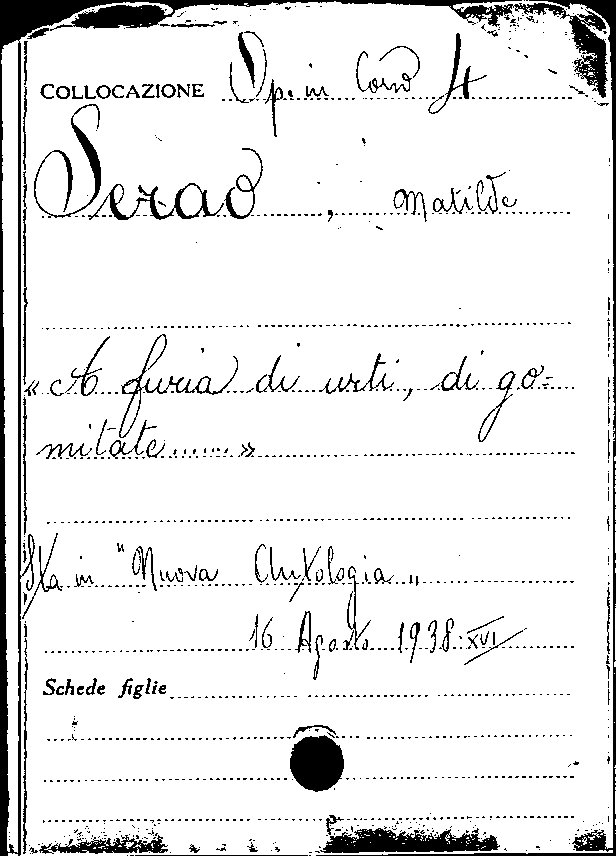 COLLOCAZIONE Op. in Corso 4
Serao, Matilde
« A furia di urti, di go=
mitate...... »
Sta in "Nuova Antologia"
16 Agosto 1938·XVI
Schede figlie